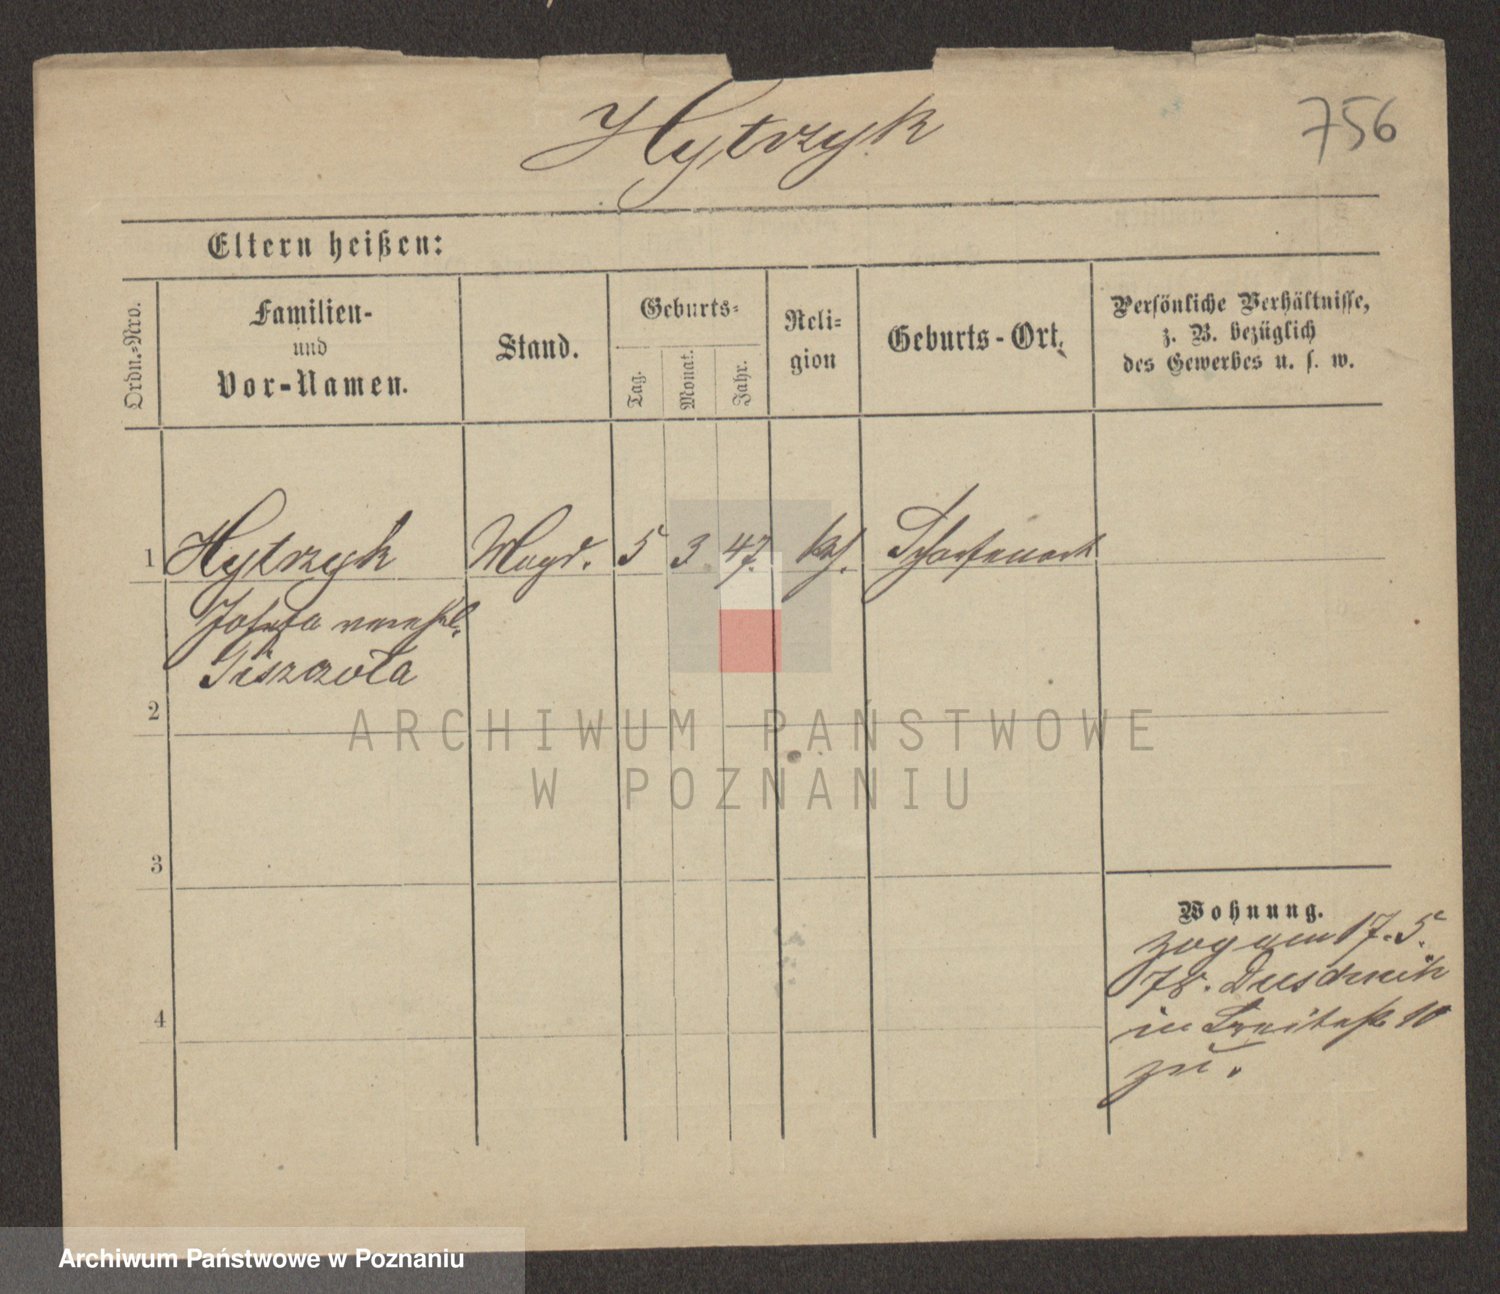 Hytrzyk
756
Eltern heißen:
Ordn.-Nro.
Familien-
und
Vor-Namen.
Stand.
Geburts-
Tag.
Monat.
Jahr.
Reli-
gion
Geburts-Ort.
Persönliche Verhältnisse,
z. B. bezüglich
des Gewerbes u. s. w.
1 Hytrzyk Magd. 5 3 47. kth. Scharfenort
Josefa verehl.
2
3
4
Wohnung.
zog am 17. 5.
78. Dusdnik
in Breitestr 10
zu.
ARCHIWUM PAŃSTWOWE
W POZNANIU
Archiwum Państwowe w Poznaniu